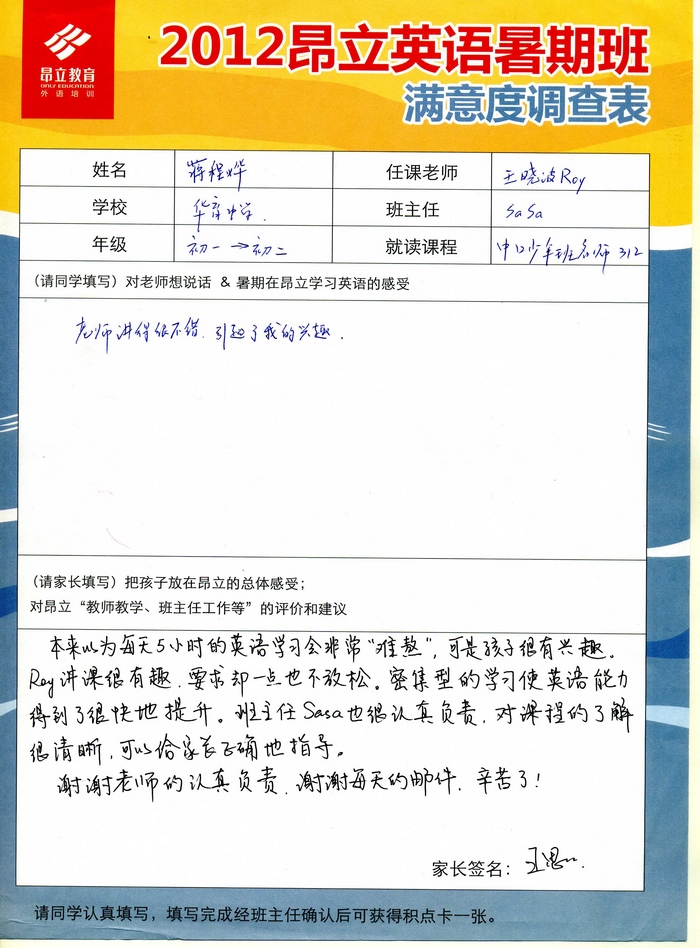 昂立教育
ONLY EDUCATION
外语培训
2012昂立英语暑期班
满意度调查表
姓名 蒋程烨 任课老师 王晓波Roy
学校 华育中学. 班主任 SaSa
年级 初一→初二 就读课程 中口少年班名师 312
(请同学填写)对老师想说话 & 暑期在昂立学习英语的感受
老师讲得很不错.引起了我的兴趣.
(请家长填写)把孩子放在昂立的总体感受;
对昂立“教师教学、班主任工作等”的评价和建议
本来以为每天5小时的英语学习会非常“难熬”,可是孩子很有兴趣。
Roy讲课很有趣.要求却一点也不放松。密集型的学习使英语能力
得到了很快地提升。班主任Sasa也很认真负责.对课程的了解
很清晰,可以给家长正确地指导。
谢谢老师的认真负责.谢谢每天的邮件.辛苦了!
家长签名:
请同学认真填写,填写完成经班主任确认后可获得积点卡一张。